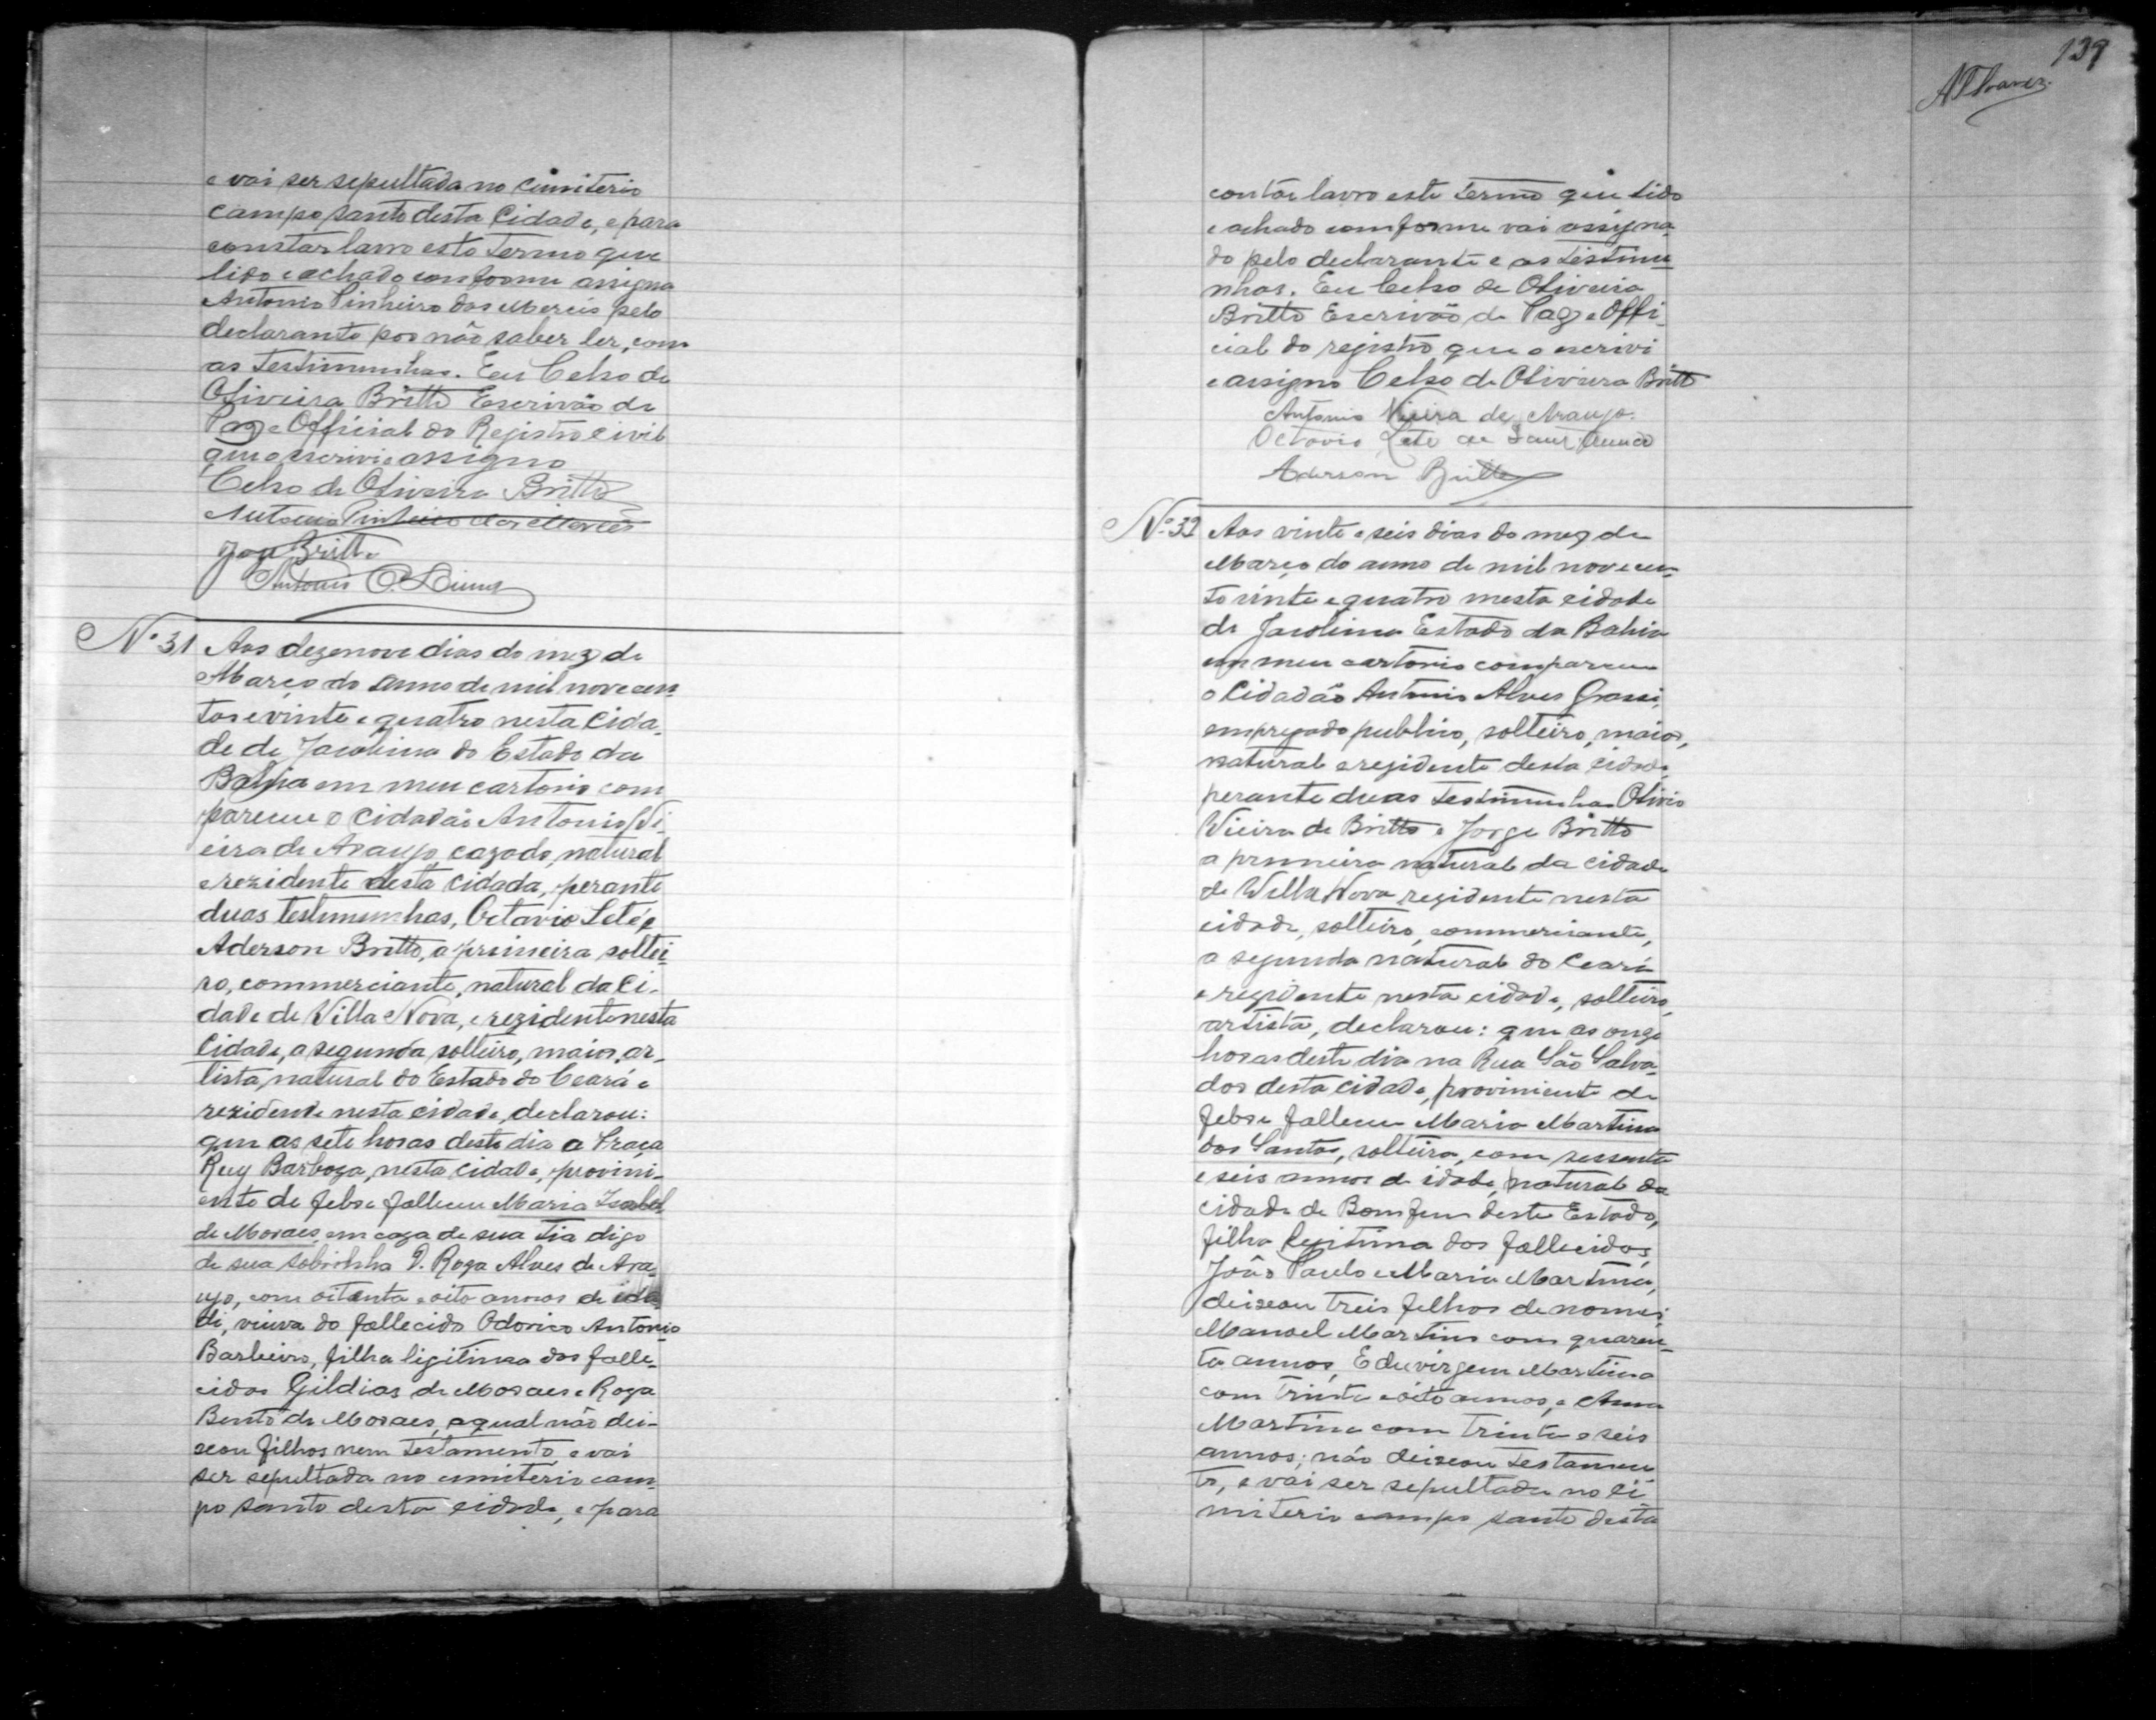 e vai ser sepultada no Cimiterio
campo santo desta Cidade, e para
constar lavro este termo que
lido e achado conforme assigna
Antonio Pinheiro das Mercês pelo
declarante por não saber ler, com
as testimunhas. Eu Celso de
Oliveira Britto Escrivão de
Paz e Official do Registro Civil
que o escrivi e assigno
Celso de Oliveira Britto
Antonio Pinheiro das Mercês
Jorge Britto
Antonio O.
Nº 31 Aos dezenove dias do mez de
Março do anno de mil novecen-
tos e vinte e quatro nesta Cida-
de de Jacobina do Estado da
Bahia em meu cartorio com
pareceu o Cidadão Antonio Vi-
eira de Araujo, cazado, natural
e rezidente desta Cidada, perante
duas testimunhas, Octavio Leté e
Aderson Britto, a primeira soltei-
ro, commerciante, natural da Ci-
dade de Villa Nova, e rezidente nesta
Cidade, a segunda solteiro, maior, ar-
tista, natural do Estado do Ceará e
rezidente nesta cidade, declarou:
que as sete horas deste dia a Praça
Ruy Barboza, nesta cidade, provini-
ente de febre falleceu Maria Izabel
de Moraes em caza de sua tia digo
de sua sobrinha D. Roza Alves de Ara-
ujo, com oitenta e oito annos de ida
di, viuva do fallecido Odorico Antonio
Barbeiro, filha ligitima dos falle-
cidos Gildias de Moraes e Roza
Bento de Moraes, a qual não dei-
xou filhos nem testamento, e vai
ser sepultada no cimiterio cam-
po santo desta cidade, e para
139
contar lavro este termo que lido
e achado conforme vai assigna-
do pelo declarante e as testimu-
nhas. Eu Celso de Oliveira
Britto Escrivão de Paz e Offi-
cial do registro que o escrivi
e assigno Celso de Oliveira Britto
Antonio Vieira de Araujo.
Octavio Leté de
Aderson Britto
Nº 32 Aos vinte e seis dias do mez de
Março do anno de mil novecen-
to vinte e quatro nesta cidade
de Jacobina Estado da Bahia
em meu cartorio compareceu
o Cidadão Antonio Alves Grassi,
empregado publico, solteiro, maior,
natural e rezidente desta cidade,
perante duas testimunhas Olivio
Vieira de Britto e Jorge Britto
a primeira natural da cidade
de Villa Nova rezidente nesta
cidade, solteiro, commerciante,
a segunda natural do Ceará
e rezidente nesta cidade, solteiro,
artista, declarou: que as onze
horas deste dia na Rua São Salva-
dor desta cidade, proviniente de
febre falleceu Maria Martina
dos Santos, solteira, com sessenta
e seis annos de idade, natural da
cidade de Bomfim deste Estado,
filha legitima dos fallecidos
João Paulo e Maria Martina,
deixou treis filhos de nomes
Manoel Martins com quaren-
ta annos, Eduvirgem Martina
com trinta e oito annos, e Anna
Martina com trinta e seis
annos; não deixou testamen-
to, e vai ser sepultada no ci
miterio campo santo desta